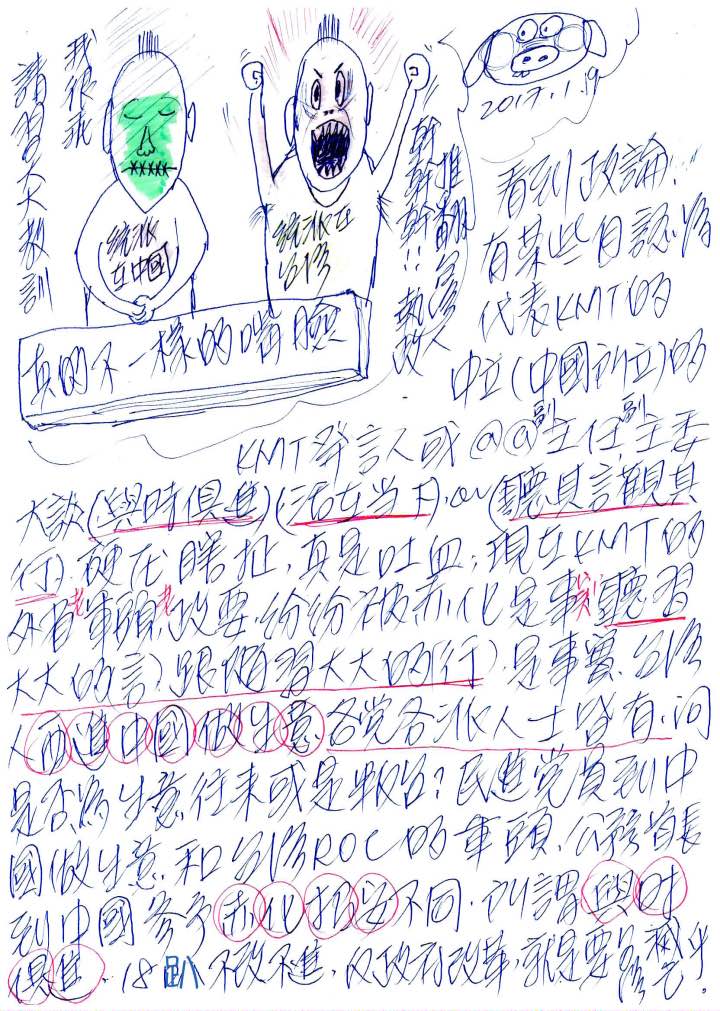 我很乖
請習大大教訓
統派
在中國
統派在
台灣
真的不一樣的嘴臉
幹幹幹!! 執政
推翻台灣人
2017.1.19
看到政論…
有某些自認為
代表KMT的
中立(中國所立)的
KMT發言人或@@副主任,副主委
大談(與時俱進)(活在當下),or(聽其言觀其
行),硬在瞎扯,真是吐血,現在KMT的
外省老軍頭,老政要,紛紛被赤化是事實!聽習
大大的言),跟隨習大大的(行),是事實,台灣
人西進中國做生意,各党各派人士皆有,問
是否為生意往來或是叛台?民進党員到中
國做生意,和台灣ROC的軍頭,公務首長
到中國參予赤化招安不同,所謂與時
俱進,18趴不改不進,反政府改革,就是要台灣